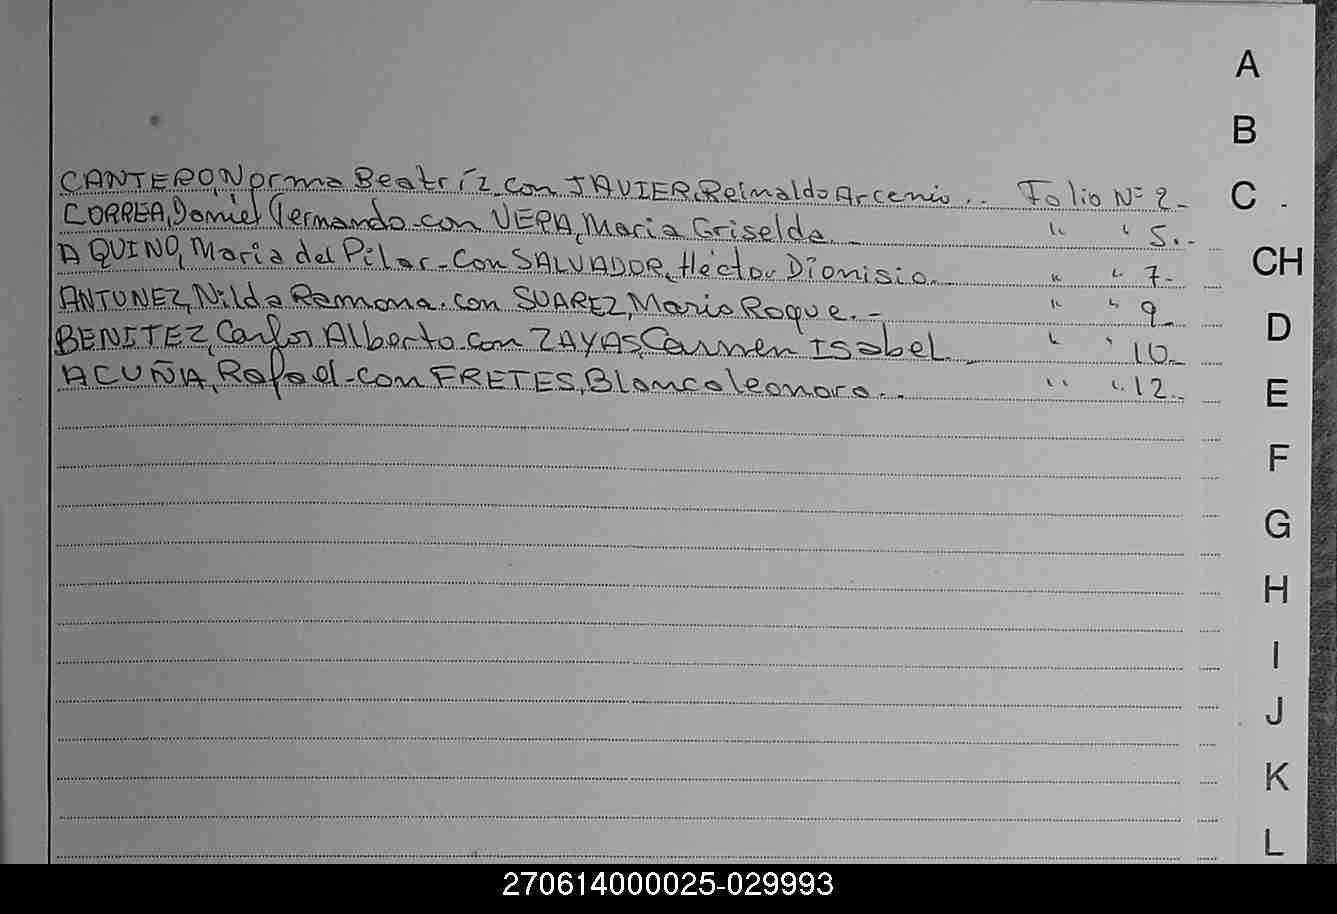 CANTERO, Norma Beatríz con JAVIER, Reinaldo Arcenio.. Folio Nº 2-
CORREA, Daniel Fernando con VERA, Maria Griselda.- " " 5.-
AQUINO, Maria del Pilar - Con SALVADOR, Héctor Dionisio.. " " 7-
ANTUNEZ, Nilda Ramona. con SUAREZ, Mario Roque.- " " 9-
BENITEZ, Carlos Alberto con ZAYAS, Carmen Isabel.- " " 10-
ACUÑA, Rafael - con FRETES, Blanca leonora.. " " 12-
A
B
C
CH
D
E
F
G
H
I
J
K
L
270614000025-029993